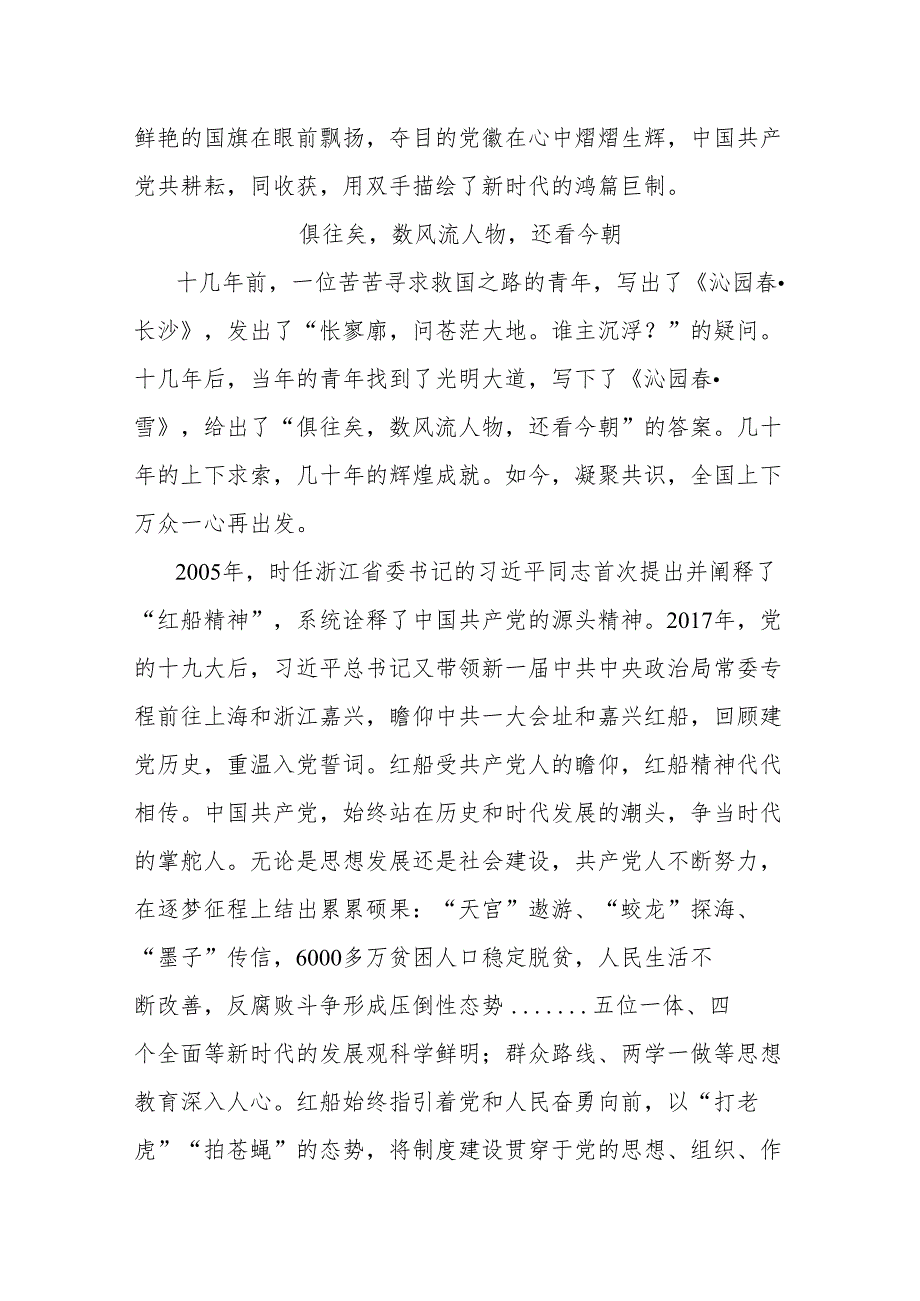 鲜艳的国旗在眼前飘扬，夺目的党徽在心中熠熠生辉，中国共产
党共耕耘，同收获，用双手描绘了新时代的鸿篇巨制。
俱往矣，数风流人物，还看今朝
十几年前，一位苦苦寻求救国之路的青年，写出了《沁园春•
长沙》，发出了“怅寥廓，问苍茫大地。谁主沉浮？”的疑问。
十几年后，当年的青年找到了光明大道，写下了《沁园春•
雪》，给出了“俱往矣，数风流人物，还看今朝”的答案。几十
年的上下求索，几十年的辉煌成就。如今，凝聚共识，全国上下
万众一心再出发。
2005年，时任浙江省委书记的习近平同志首次提出并阐释了
“红船精神”，系统诠释了中国共产党的源头精神。2017年，党
的十九大后，习近平总书记又带领新一届中共中央政治局常委专
程前往上海和浙江嘉兴，瞻仰中共一大会址和嘉兴红船，回顾建
党历史，重温入党誓词。红船受共产党人的瞻仰，红船精神代代
相传。中国共产党，始终站在历史和时代发展的潮头，争当时代
的掌舵人。无论是思想发展还是社会建设，共产党人不断努力，
在逐梦征程上结出累累硕果：“天宫”遨游、“蛟龙”探海、
“墨子”传信，6000多万贫困人口稳定脱贫，人民生活不
断改善，反腐败斗争形成压倒性态势.......五位一体、四
个全面等新时代的发展观科学鲜明；群众路线、两学一做等思想
教育深入人心。红船始终指引着党和人民奋勇向前，以“打老
虎”“拍苍蝇”的态势，将制度建设贯穿于党的思想、组织、作